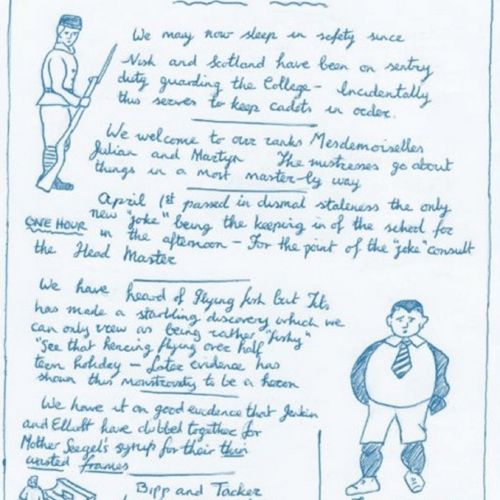 We may now sleep in safety since
Nish and Scotland have been on sentry
duty guarding the College - Incidentally
this serves to keep cadets in order.
We welcome to our ranks Mesdemoiselles
Julian and Martyn The mistresses go about
things in a most master-ly way
April 1st passed in dismal staleness the only
new "joke" being the keeping in of the school for
ONE HOUR in the afternoon - For the point of the "joke" consult
the Head Master
We have heard of flying fish but Tits
has made a startling discovery which we
can only view as being rather "fishy"
"See that herring flying over half
term holiday - Later evidence has
shown this monstrosity to be a heron
We have it on good evidence that Jenkin
and Elliott have clubbed together for
Mother Seegel's syrup for their thin
wasted frames
Bipp and Tacker